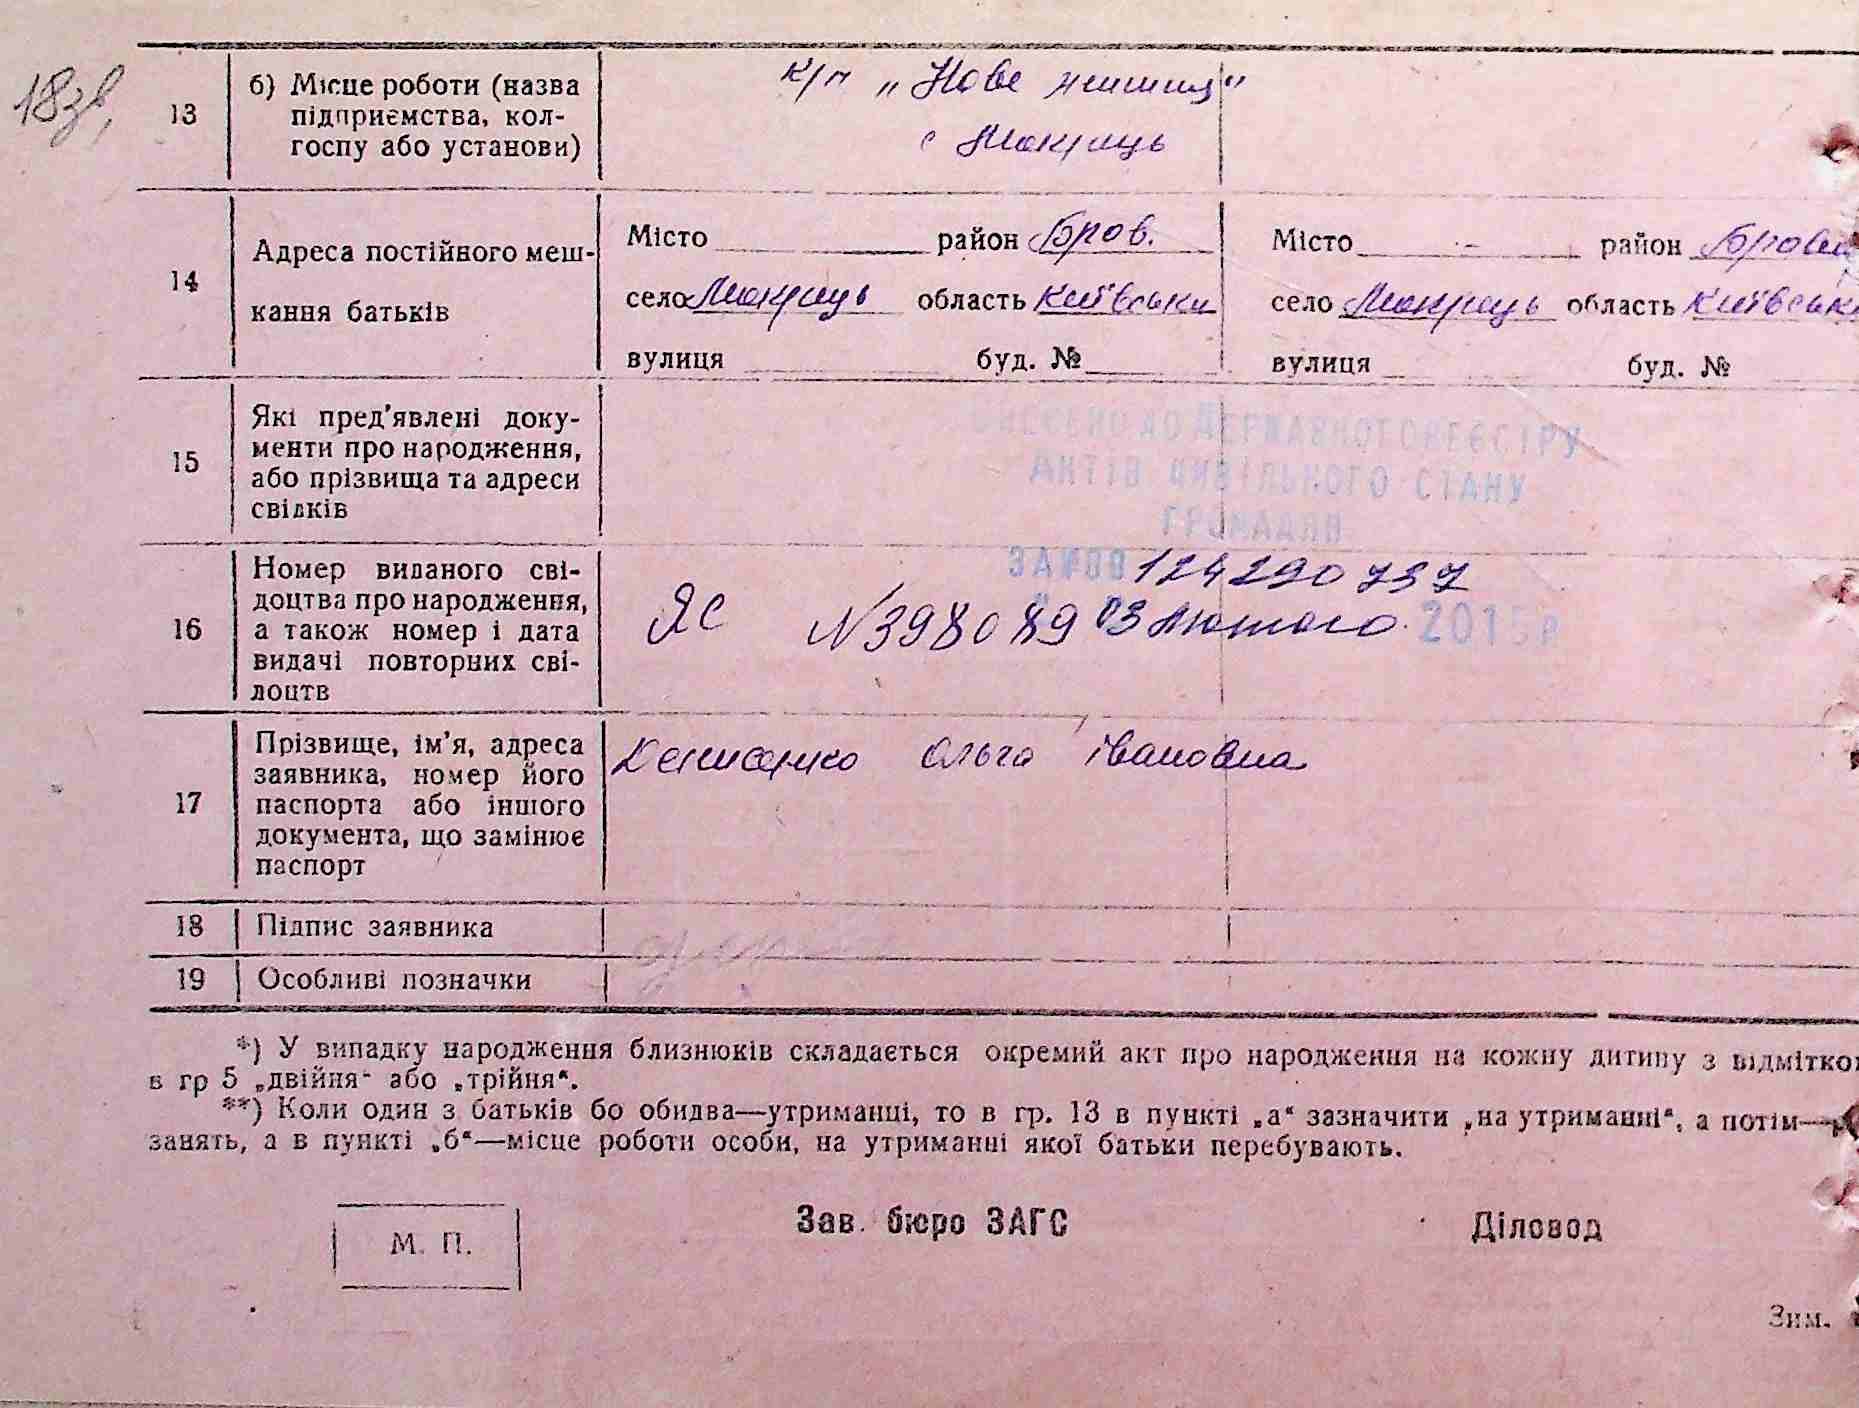 18зв,
13 б) Місце роботи (назва підприємства, колгоспу або установи)
к/п „Нове життя"
с Мокрець
14 Адреса постійного мешкання батьків
Місто район Бров. Місто - район Бров
село Мокрець область Київська село Мокрець область Київськ
вулиця буд. № вулиця буд. №
15 Які пред'явлені документи про народження, або прізвища та адреси свідків
ВНЕСЕНО ДО ДЕРЖАВНОГО РЕЄСТРУ
АКТІВ ЦИВІЛЬНОГО СТАНУ
ГРОМАДЯН
16 Номер виданого свідоцтва про народження, а також номер і дата видачі повторних свідоцтв
124290737
ЯС N398089 03 Лютого 2015р
17 Прізвище, ім'я, адреса заявника, номер його паспорта або іншого документа, що замінює паспорт
Денисенко Ольга Івановна
18 Підпис заявника
19 Особливі позначки
*) У випадку народження близнюків складається окремий акт про народження на кожну дитину з відмітко
в гр 5 „двійня“ або „трійня“.
**) Коли один з батьків бо обидва—утриманці, то в гр. 13 в пункті „а“ зазначити „на утриманні“, а потім—
занять, а в пункті „б“—місце роботи особи, на утриманні якої батьки перебувають.
М. П. Зав. бюро ЗАГС Діловод
Зим.